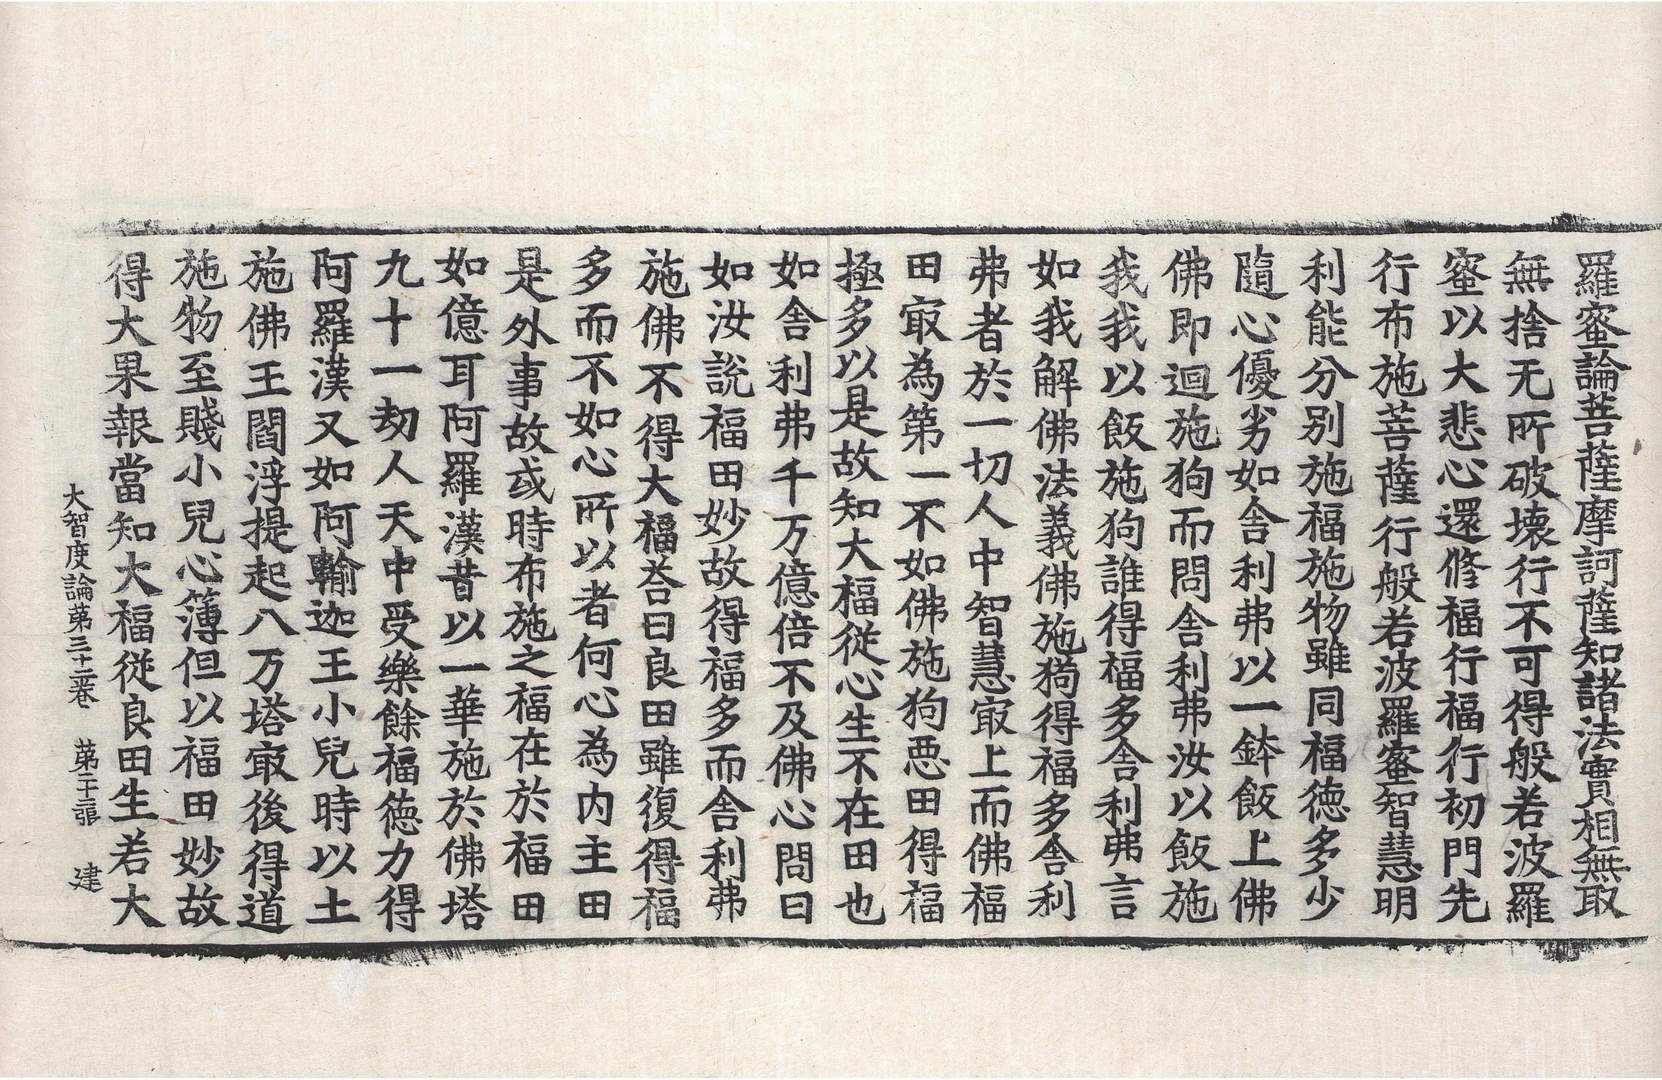 羅蜜論菩薩摩訶薩知諸法實相無取
無捨无所破壞行不可得般若波羅
蜜以大悲心還修福行福行初門先
行布施菩薩行般若波羅蜜智慧明
利能分別施福施物雖同福德多少
隨心優劣如舍利弗以一鉢飯上佛
佛即迴施狗而問舍利弗汝以飯施
我我以飯施狗誰得福多舍利弗言
如我解佛法義佛施狗得福多舍利
弗者於一切人中智慧㝡上而佛福
田㝡為第一不如佛施狗惡田得福
極多以是故知大福從心生不在田也
如舍利弗千万億倍不及佛心問曰
如汝說福田妙故得福多而舍利弗
施佛不得大福荅曰良田雖復得福
多而不如心所以者何心為內主田
是外事故或時布施之福在於福田
如億耳阿羅漢昔以一華施於佛塔
九十一劫人天中受樂餘福德力得
阿羅漢又如阿輸迦王小兒時以土
施佛王閻浮提起八万塔㝡後得道
施物至賤小兒心簿但以福田妙故
得大果報當知大福從良田生若大
大智度論第三十二卷 第二十二張 建